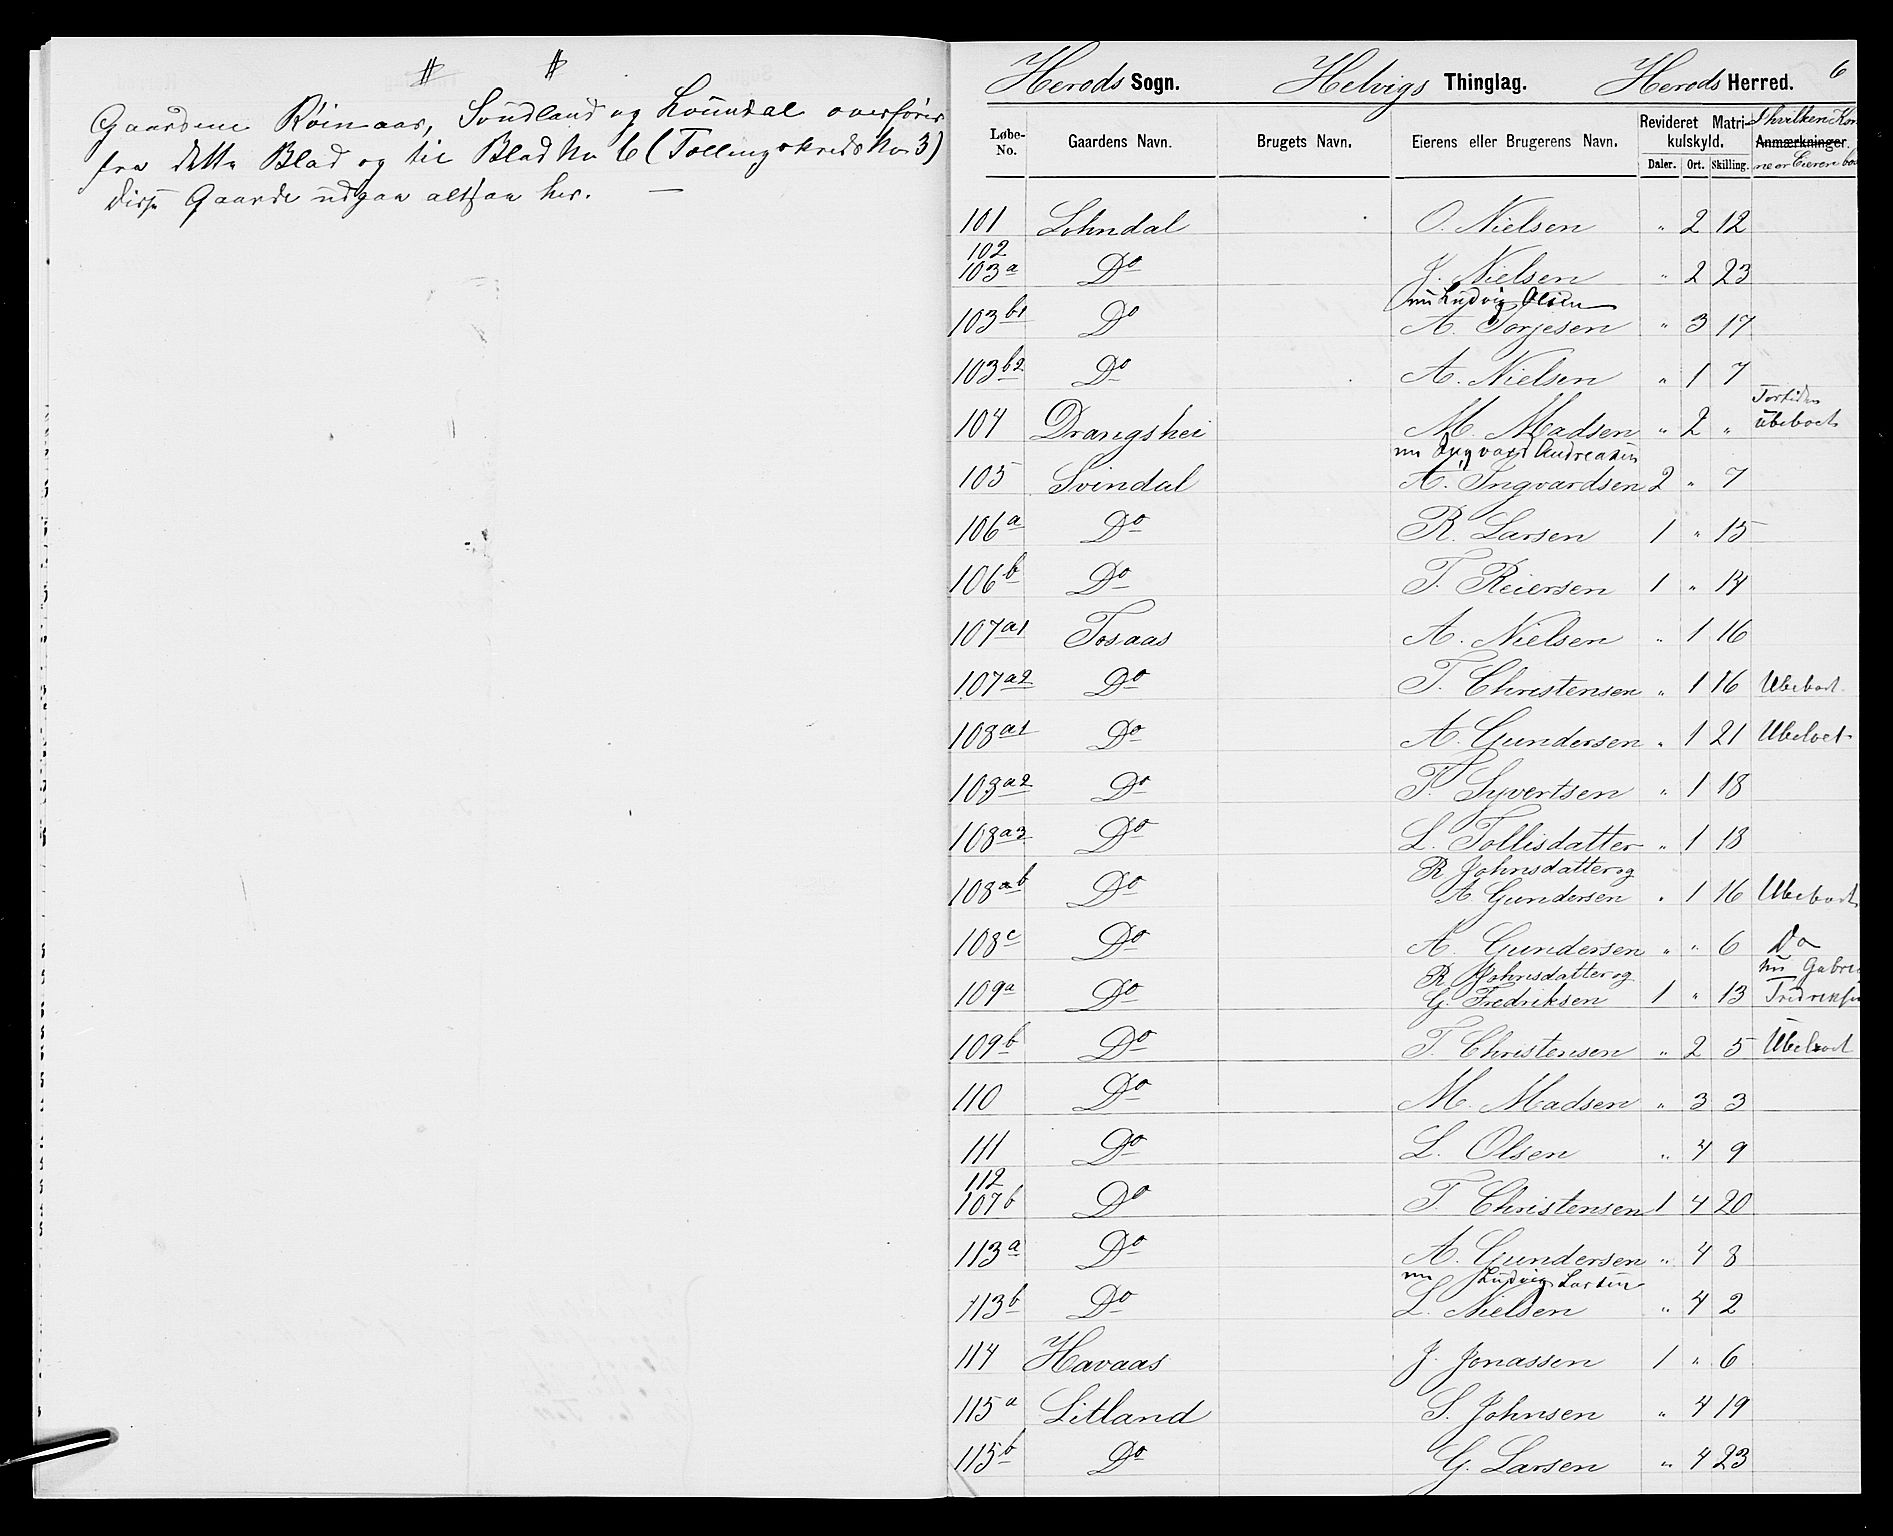 # #
Gaardene Röinaas, Sundland og Loundal overföres
fra dette Blad og til Blad No 6 (Tællingskreds No 3)
disse Gaarde udgaa altsaa her. —
6
Herods Sogn. Helvigs Thinglag. Herods Herred.
Løbe-No. Gaardens Navn. Brugets Navn. Eierens eller Brugerens Navn. Revideret Matrikulskyld. Daler. Ort. Skilling. Anmærkninger. I hvilken Kom ne er Eieren bos
101 Lohndal O. Nielsen " 2 12
102
103a Do J. Nielsen " 2 23
nu Ludvig Olsen
103b1 Do A. Torjesen " 3 17
103b2 Do A. Nielsen " 1 7
104 Drangshei M. Madsen " 2 " Fortiden ubeboet
nu Ingvard Andreasen
105 Svindal A. Ingvardsen 2 " 7
106a Do R. Larsen 1 " 15
106b Do T. Reiersen 1 " 14
107a1 Tosaas A. Nielsen " 1 16
107a2 Do T. Christensen " 1 16 Ubeboet
108a1 Do A. Gundersen " 1 21 Ubeboet
108a2 Do T. Syvertsen " 1 18
108a3 Do L. Tollisdatter " 1 18
R. Johnsdatter og
108ab Do A. Gundersen " 1 16 Ubeboet
108c Do A. Gundersen " " 6 Do
R. Johnsdatter og nu Gabriel
109a Do G. Fredriksen 1 " 13 Fredriksen
109b Do T. Christensen " 2 5 Ubeboet
110 Do M. Madsen " 3 3
111 Do L. Olsen " 4 9
112
107b Do T. Christensen 1 4 20
113a Do A. Gundersen " 4 8
nu Ludvig Larsen
113b Do L. Nielsen " 4 2
114 Havaas J. Jonassen 1 " 6
115a Litland S. Johnsen " 4 19
115b Do G. Larsen " 4 23